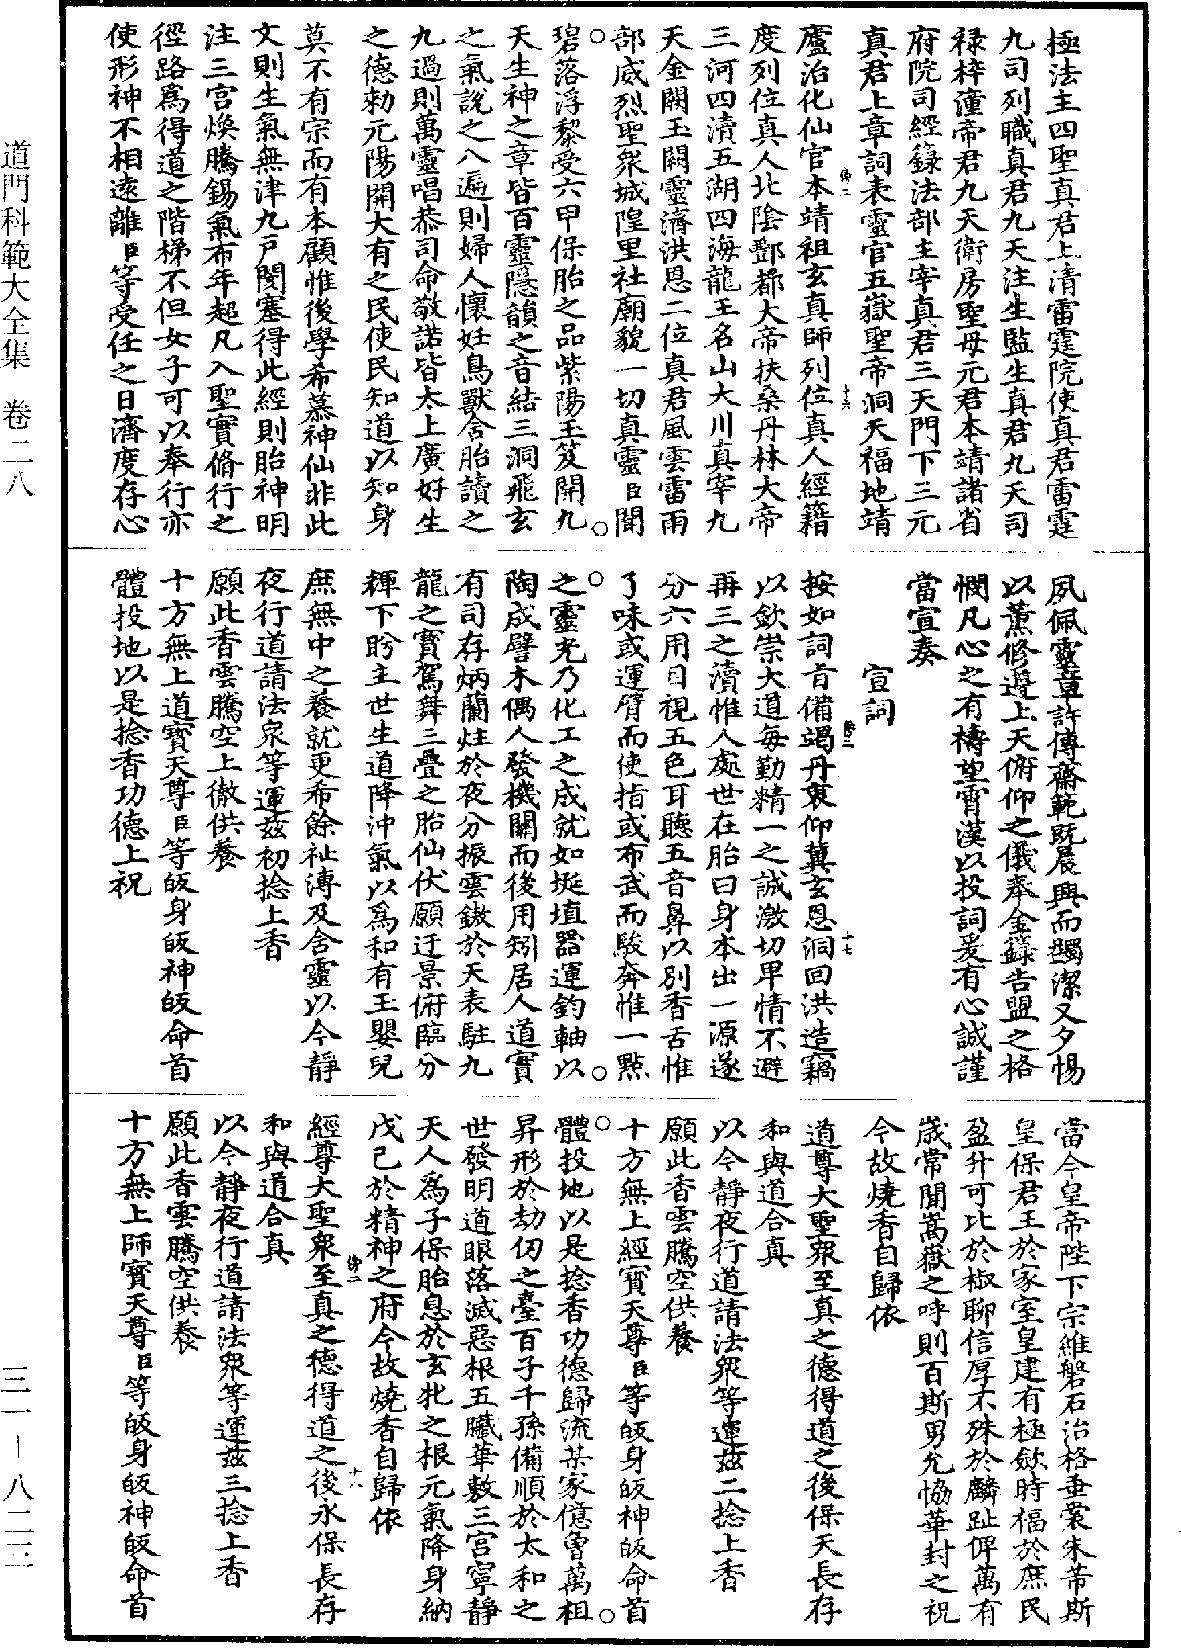 極法主四聖真君上清雷霆院使真君雷霆
九司列職真君九天注生監生真君九天司
祿梓潼帝君九天衛房聖母元君本靖諸省
府院司經籙法部主宰真君三天門下三元
真君上章詞表靈官五嶽聖帝洞天福地靖
廬治化仙官本靖祖玄真師列位真人經籍
度列位真人北陰酆都大帝扶桑丹林大帝
三河四瀆五湖四海龍王名山大川真宰九
天金闕玉闕靈濟洪恩二位真君風雲雷雨
部威烈聖衆城隍里社廟貌一切真靈臣聞
碧落浮黎受六甲保胎之品紫陽玉笈開九
天生神之章皆百靈隱韻之音結三洞飛玄
之氣說之八遍則婦人懷妊鳥獸含胎讀之
九過則萬靈唱恭司命敬諾皆太上廣好生
之德勑元陽開大有之民使民知道以知身
莫不有宗而有本顧惟後學希慕神仙非此
文則生氣無津九戶閉塞得此經則胎神明
注三宮煥騰錫氣布年超凡入聖實脩行之
徑路爲得道之階梯不但女子可以奉行亦
使形神不相遠離臣等受任之日濟度存心
夙佩靈章許傳齋範既晨興而蠲潔又夕惕
以薰修邊上天俯仰之儀奉金籙告盟之格
憫凡心之有禱望霄漢以投詞爰有心誠謹
當宣奏
宣詞
按如詞旨備竭丹衷仰冀玄恩洞回洪造竊
以欽崇大道每勤精一之誠激切甲情不避
再三之瀆惟人處世在胎曰身本出一源遂
分六用目視五色耳聽五音鼻以別香舌惟
了味或運臂而使指或布武而駿奔惟一點
之靈光乃化工之成就如埏埴器運鈞軸以
陶成譬木偶人發機關而後用矧居人道實
有司存炳蘭炷於夜分振雲璈於天表駐九
龍之寶駕舞三疊之胎仙伏願迂景俯臨分
輝下盻主世生道降沖氣以爲和有玉嬰兒
庶無中之養就更希餘祉溥及含靈以今靜
夜行道請法衆等運茲初捻上香
願此香雲騰空上徹供養
十方無上道寶天尊臣等皈身皈神皈命首
體投地以是捻香功德上祝
當今皇帝陛下宗維磐石治格垂裳朱芾斯
皇保君王於家室皇建有極斂時福於庶民
盈升可比於椒聊信厚不殊於麟趾俾萬有
歲常聞嵩嶽之呼則百斯男允恊華封之祝
今故燒香自歸依
道尊大聖衆至真之德得道之後保天長存
和與道合真
以今靜夜行道請法衆等運茲二捻上香
願此香雲騰空供養
十方無上經寶天尊臣等皈身皈神皈命首
體投地以是捻香功德歸流某家億曾萬祖
昇形於劫仞之臺百子千孫備順於太和之
世發明道眼落滅惡根五臟華敷三宮寧靜
天人爲子保胎息於玄牝之根元氣降身納
戊己於精神之府今故燒香自歸依
經尊大聖衆至真之德得道之後永保長存
和與道合真
以今靜夜行道請法衆等運茲三捻上香
願此香雲騰空供養
十方無上師寶天尊臣等皈身皈神皈命首
道門科範大全集　卷二八
三一－八二二